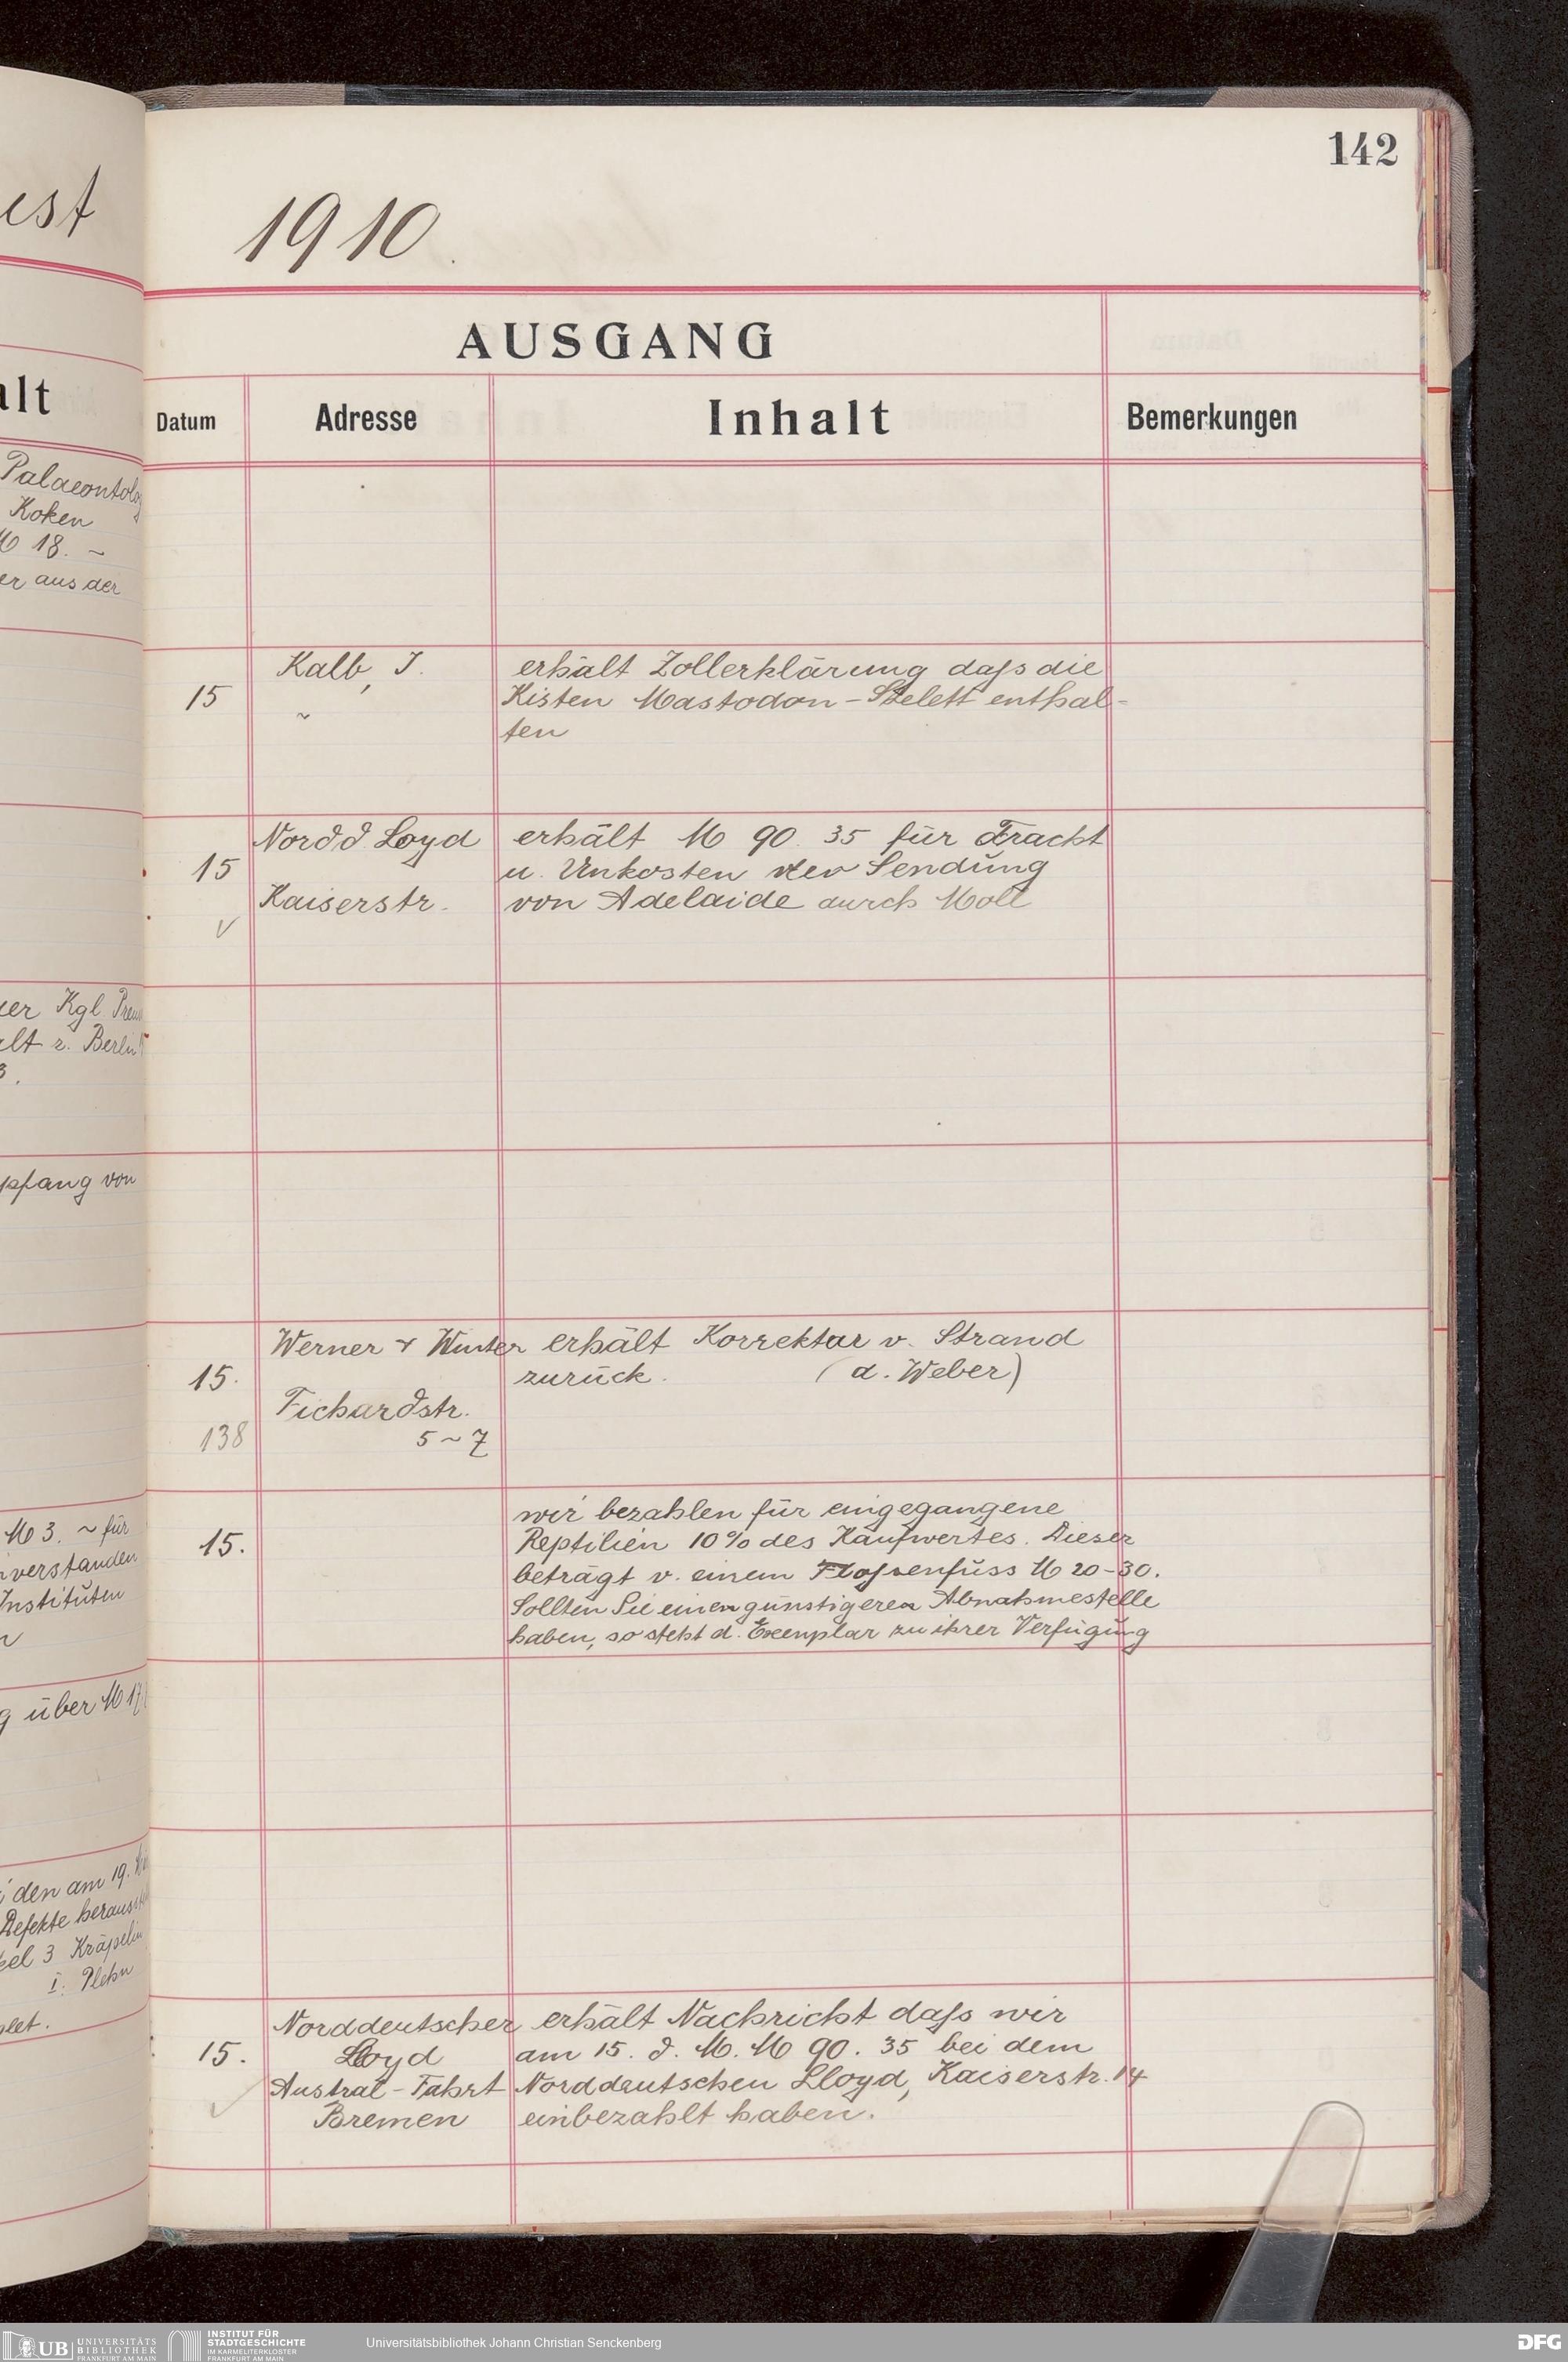 est
alt
Palaeontolog
Koken
M 18. ~
er aus der
er Kgl Preu
alt z. Berlin
3.
pfang von
M 3. ~ für
nverstanden
Instituten
n
g über M 17
den am 19.
Defekte heraus
kel 3 Kräpelin
I. Plehn
plet.
142
1910.
AUSGANG
Datum
Adresse
Inhalt
Bemerkungen
15
Kalb, J.
~
erhält Zollerklärung daſs die
Kisten Mastodon-Skelett enthal-
ten
15
Nordd. Loyd
Kaiserstr.
erhält M 90. 35 für Fracht
u. Unkosten der Sendung
von Adelaide durch Moll
15.
138
Werner & Winter
Fichardstr.
5~7
erhält Korrektur v. Strand
zurück. (d. Weber)
15.
wir bezahlen für eingegangene
Reptilien 10% des Kaufwertes. Dieser
beträgt v. einem Floſsenfuss M 20-30.
Sollten Sie einen günstigeren Abnahmestelle
haben, so steht d. Exemplar zu ihrer Verfügung
15.
Norddeutscher
Lloyd
Austral-Fahrt
Bremen
erhält Nachricht daſs wir
am 15. d. M. M 90. 35 bei dem
Norddeutschen Lloyd, Kaiserstr. 14
einbezahlt haben.
UB UNIVERSITÄTS
BIBLIOTHEK
FRANKFURT AM MAIN
INSTITUT FÜR
STADTGESCHICHTE
IM KARMELITERKLOSTER
FRANKFURT AM MAIN
Universitätsbibliothek Johann Christian Senckenberg
DFG